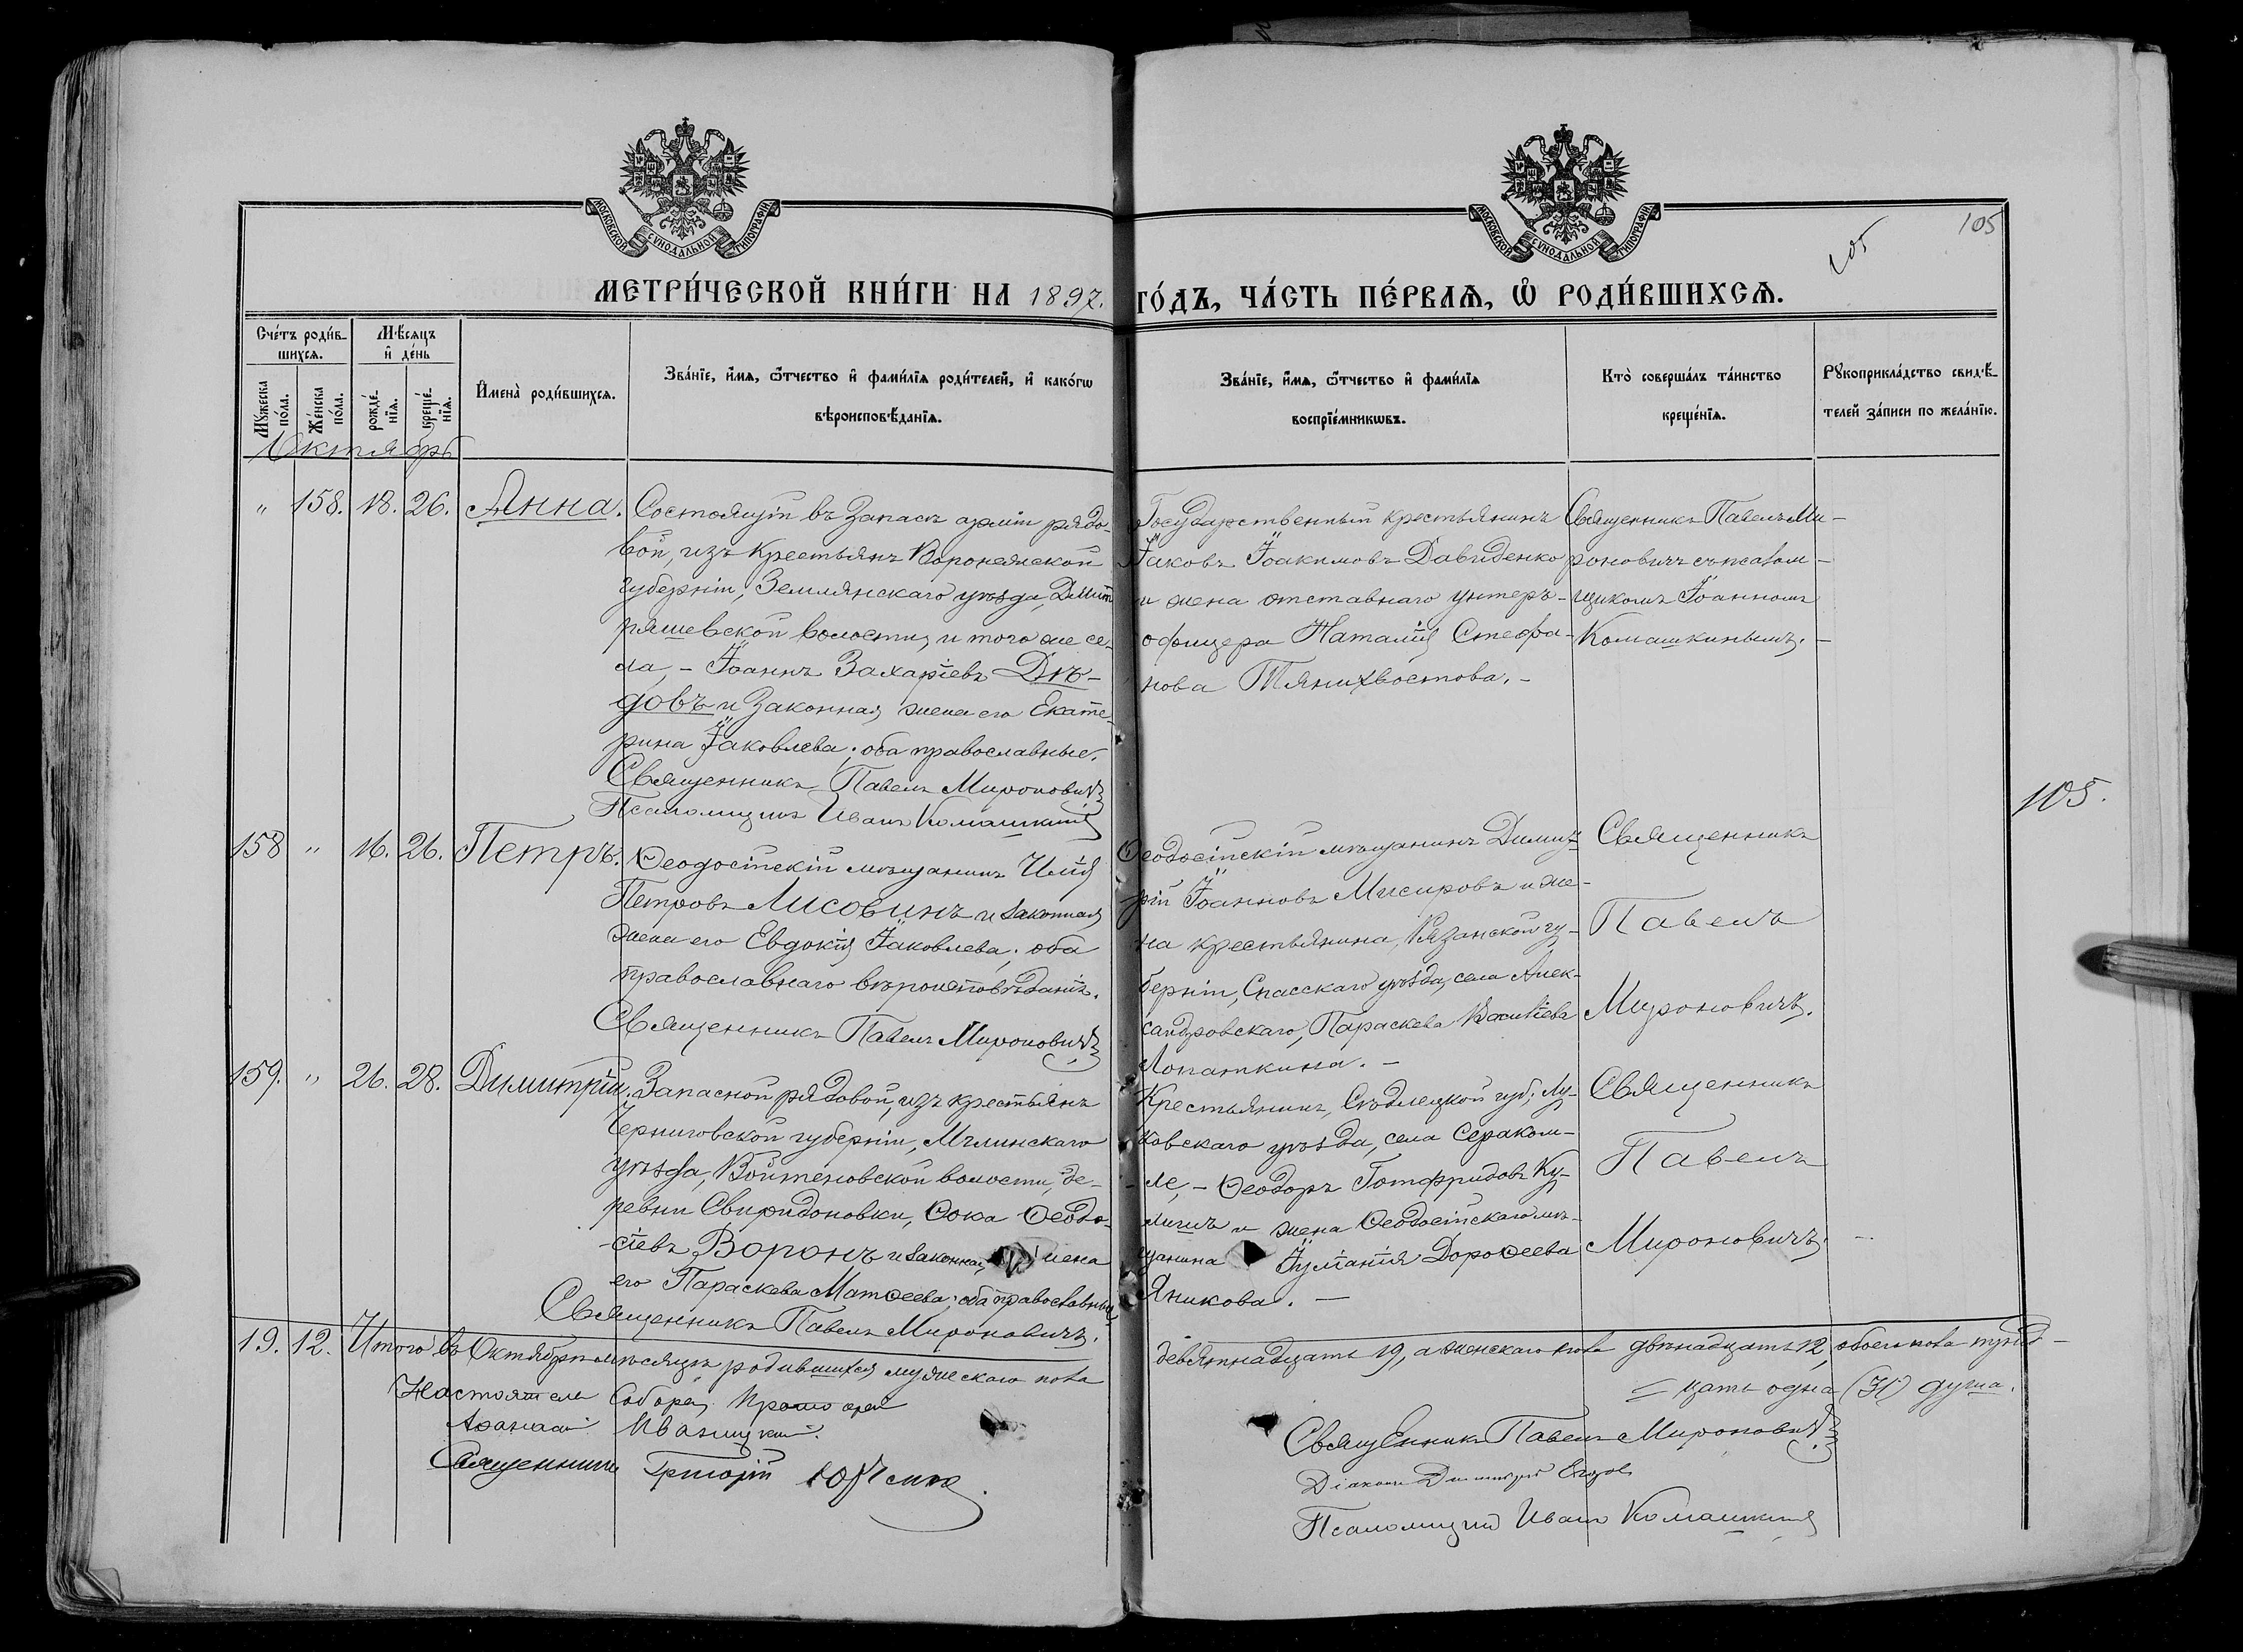 МОСКОВСКОЙ СУНОДАЛЬНОЙ ТИПОГРАФІИ
МОСКОВСКОЙ СУНОДАЛЬНОЙ ТИПОГРАФІИ
105
105
МЕТРИ́ЧЕСКОЙ КНИ́ГИ НА 1897.
ГО́ДЪ, ЧА́СТЬ ПЕ́РВАѦ, Ѽ РОДИ́ВШИХСѦ.
Сче́тъ роди́в-
шихсѧ.
Мѣ́сѧцъ
и҆ де́нь
Мꙋ́жеска
по́ла.
Же́нска
по́ла.
рожде́-
нїѧ.
креще́-
нїѧ.
И҆мена̀ роди́вшихсѧ.
Зва́нїе, и҆́мѧ, ѻ҆́тчество и҆ фами́лїѧ роди́телей, и҆ како́гѡ
вѣроисповѣ́данїѧ.
Зва́нїе, и҆́мѧ, ѻ҆́тчество и҆ фами́лїѧ
воспрїе́мникѡвъ.
Кто̀ соверша́лъ та́инство
креще́нїѧ.
Рꙋкоприкла́дство свидѣ́-
телей за́писи по жела́нїю.
Октябрь
" 158. 18. 26. Анна.
Состоящій въ запасѣ арміи рядо-
вой, изъ крестьянъ Воронежской
губерніи, Землянскаго уѣзда, Дмит-
ряшевской волости, и того же се-
ла, - Іоаннъ Захаріевъ Дѣ-
довъ и законная жена его Екате-
рина Іаковлева; оба православные.
Священникъ Павелъ Мироновичъ
Псаломщикъ Иванъ Комашкинъ
Государственный крестьянинъ
Іаковъ Іоакимовъ Давиденко
и жена отставнаго унтеръ-
офицера Наталія Стефа-
нова Тянихвостова. -
Священникъ Павелъ Ми-
роновичъ съ псалом-
щикомъ Іоанномъ
Комашкинымъ. -
105.
158 " 16. 26. Петръ.
Ѳеодосійскій мѣщанинъ Илія
Петровъ Лисовинъ и законная
жена его Евдокія Іаковлева; оба
православнаго вѣроисповѣданія.
Священникъ Павелъ Мироновичъ
Ѳеодосійскій мѣщанинъ Димит-
рій Іоанновъ Мисировъ и же-
на крестьянина, Рязанской гу-
берніи, Спасскаго уѣзда, села Алек-
сандровскаго, Параскева Василіева
Лопаткина. -
Священникъ
Павелъ
Мироновичъ.
159. " 26. 28. Димитрій.
Запасной рядовой, изъ крестьянъ
Черниговской губерніи, Мглинскаго
уѣзда, Войтеновской волости, де-
ревни Свиридоновки, Ѳома Ѳеодо-
сіевъ Воронъ и законная жена
его Параскева Матѳеева; оба православные
Священникъ Павелъ Мироновичъ.
Крестьянинъ, Сѣдлецкой губ; Лу-
ковскаго уѣзда, села Сераком-
ле, - Ѳеодоръ Готфридовъ Ку-
лигъ и жена Ѳеодосійскаго мѣ-
щанина Іуліанія Дороѳеева
Яникова. -
Священникъ
Павелъ
Мироновичъ.
19. 12. Итого въ Октябрѣ мѣсяцѣ родившихся мужескаго пола
девятнадцать 19, а женскаго пола двѣнадцать 12, обоего пола трид-
цать одна (31) душа.
Настоятель Собора, Протоіерей
Аѳанасій Иваницкій.
Священникъ Григорій
Священникъ Павелъ Мироновичъ
Діаконъ Димитрій
Псаломщикъ Иванъ Комашкинъ